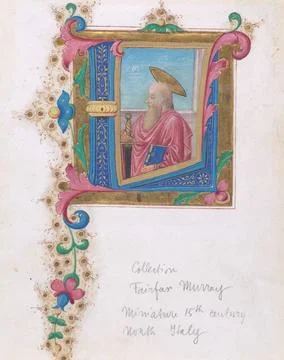 Collection
Fairfax Murray
Miniature 15th century
North Italy